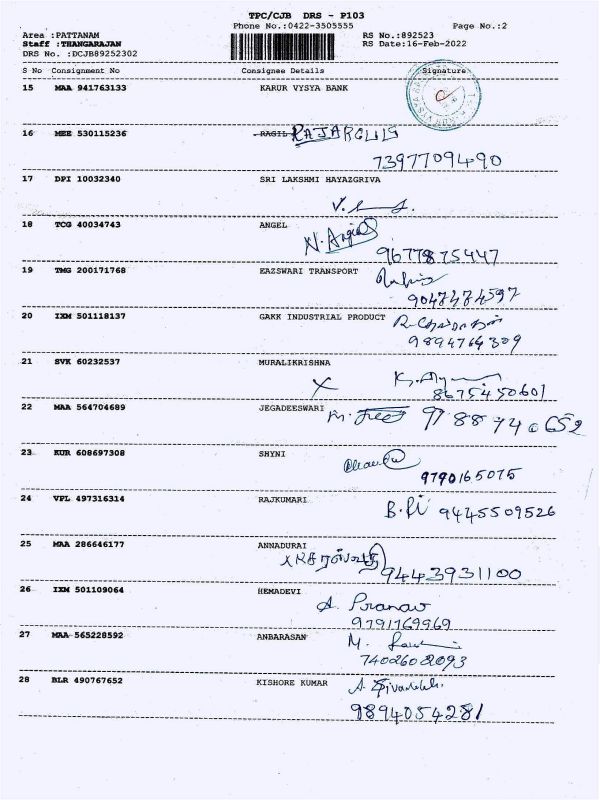 TPC/CJB DRS - P103
Phone No.:0422-3505555 Page No.:2
Area :PATTANAM RS No.:892523
Staff :THANGARAJAN RS Date:16-Feb-2022
DRS No. :DCJB89252302
S No Consignment No Consignee Details Signature
15 MAA 941763133 KARUR VYSYA BANK
16 MEE 530115236 RAGIL
7397709490
17 DPI 10032340 SRI LAKSHMI HAYAZGRIVA
18 TCG 40034743 ANGEL
N. Angel
9677875447
19 TMG 200171768 EAZSWARI TRANSPORT
9047474597
20 IXM 501118137 GAKK INDUSTRIAL PRODUCT
9894764309
21 SVK 60232537 MURALIKRISHNA
X
8675450601
22 MAA 564704689 JEGADEESWARI
9788740652
23 KUR 608697308 SHYNI
9790165075
24 VPL 497316314 RAJKUMARI
9445509526
25 MAA 286646177 ANNADURAI
9443931100
26 IXM 501109064 HEMADEVI
A. Pranav
9791769969
27 MAA 565228592 ANBARASAN
7402602093
28 BLR 490767652 KISHORE KUMAR
9894054281